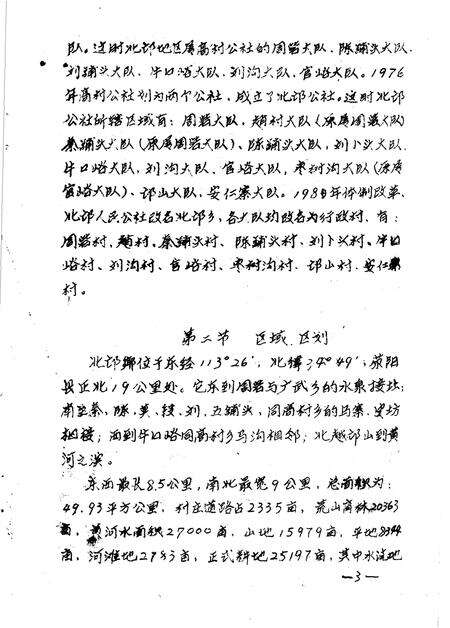 队。这时北邙地区属高村公社的周砦大队、陈铺头大队、
刘铺头大队、牛口峪大队、刘沟大队、官峪大队。1976
年高村公社划为两个公社，成立了北邙公社。这时北邙
公社所辖区域有：周砦大队，赵村大队（原属周砦大队）
秦铺头大队（原属周砦大队）、陈铺头大队，刘卜头大队、
牛口峪大队、刘沟大队、官峪大队，枣树沟大队（原属
官峪大队）、邙山大队，安仁寨大队。1985年体制改革，
北邙人民公社改名北邙乡，各大队均改名为行政村，有：
周砦村、赵村、秦铺头村、陈铺头村、刘卜头村、牛口
峪村、刘沟村、官峪村、枣树沟村、邙山村、安仁寨
村。
第二节 区域、区划
北邙乡位于东经113°26′，北纬34°49′，荥阳
县正北19公里处。它东到周砦与广武乡的水泉接址；
南至秦、陈、吴、程、刘、五铺头、同高村乡的马寨、史坊
相接；西到牛口峪同高村乡马沟相邻；北越邙山到黄
河之滨。
东西最长8.5公里，南北最宽9公里，总面积为：
49.93平方公里，村庄道路占2335亩，荒山育林20363
亩，黄河水面积27000亩，山地15979亩，平地8394
亩，河滩地2783亩，正式耕地25197亩，其中水浇地
—3—